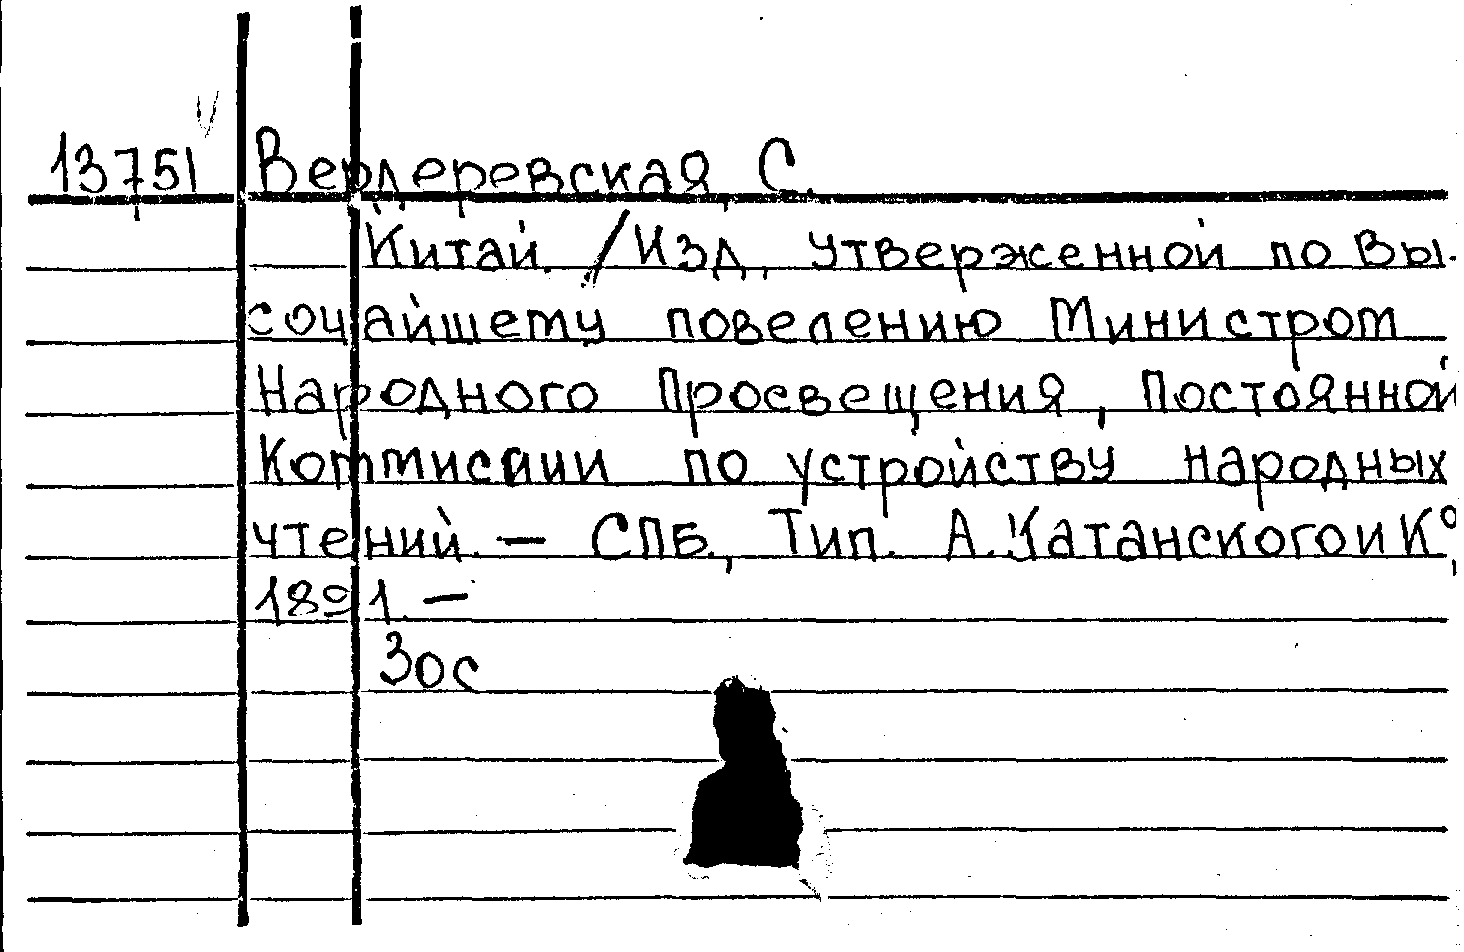 13751 Вердеревская С.
Китай. /Изд. утвержденной по Вы-
сочайшему повелению Министром
Народного Просвещения, Постоянной
Коммиссии по устройству народных
чтений. — СПБ., Тип. А. Катанского и К°,
1891. —
30с